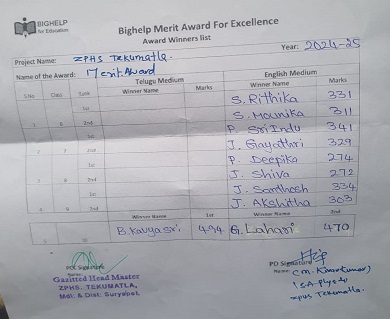 BIGHELP
for Education
Bighelp Merit Award For Excellence
Award Winners list
Year: 2024-25
Project Name: ZPHS Tekumatla.
Name of the Award: Merit Award
Telugu Medium English Medium
S.No Class Rank Winner Name Marks Winner Name Marks
1st S. Rithika 331
2nd S. Mounika 311
1st P. Sri Indu 341
2nd J. Gayathri 329
1st P. Deepika 274
2nd J. Shiva 272
1st J. Santhosh 334
2nd J. Akshitha 303
Winner Name 1st Winner Name 2nd
B. Kavya Sri. 494 G. Lahari 470
Signature PD Signature
Name: Name: (M. Kiran Kumar)
Gazitted Head Master
ZPHS. TEKUMATLA,
Mdl: & Dist: Suryapet.
ZPHS Tekumatla.